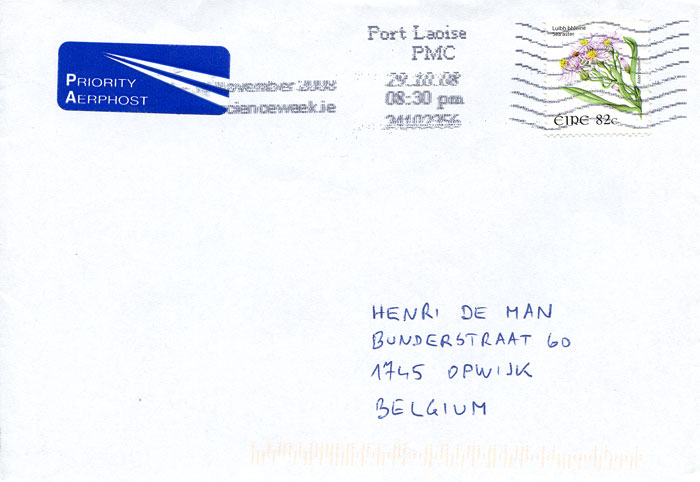 PRIORITY
AERPHOST
November 2008
scienceweek.ie
Port Laoise
PMC
29.10.08
08:30 pm
Luibh bhléine
Sea aster
ÉIRE 82c
HENRI DE MAN
BUNDERSTRAAT 60
1745 OPWIJK
BELGIUM